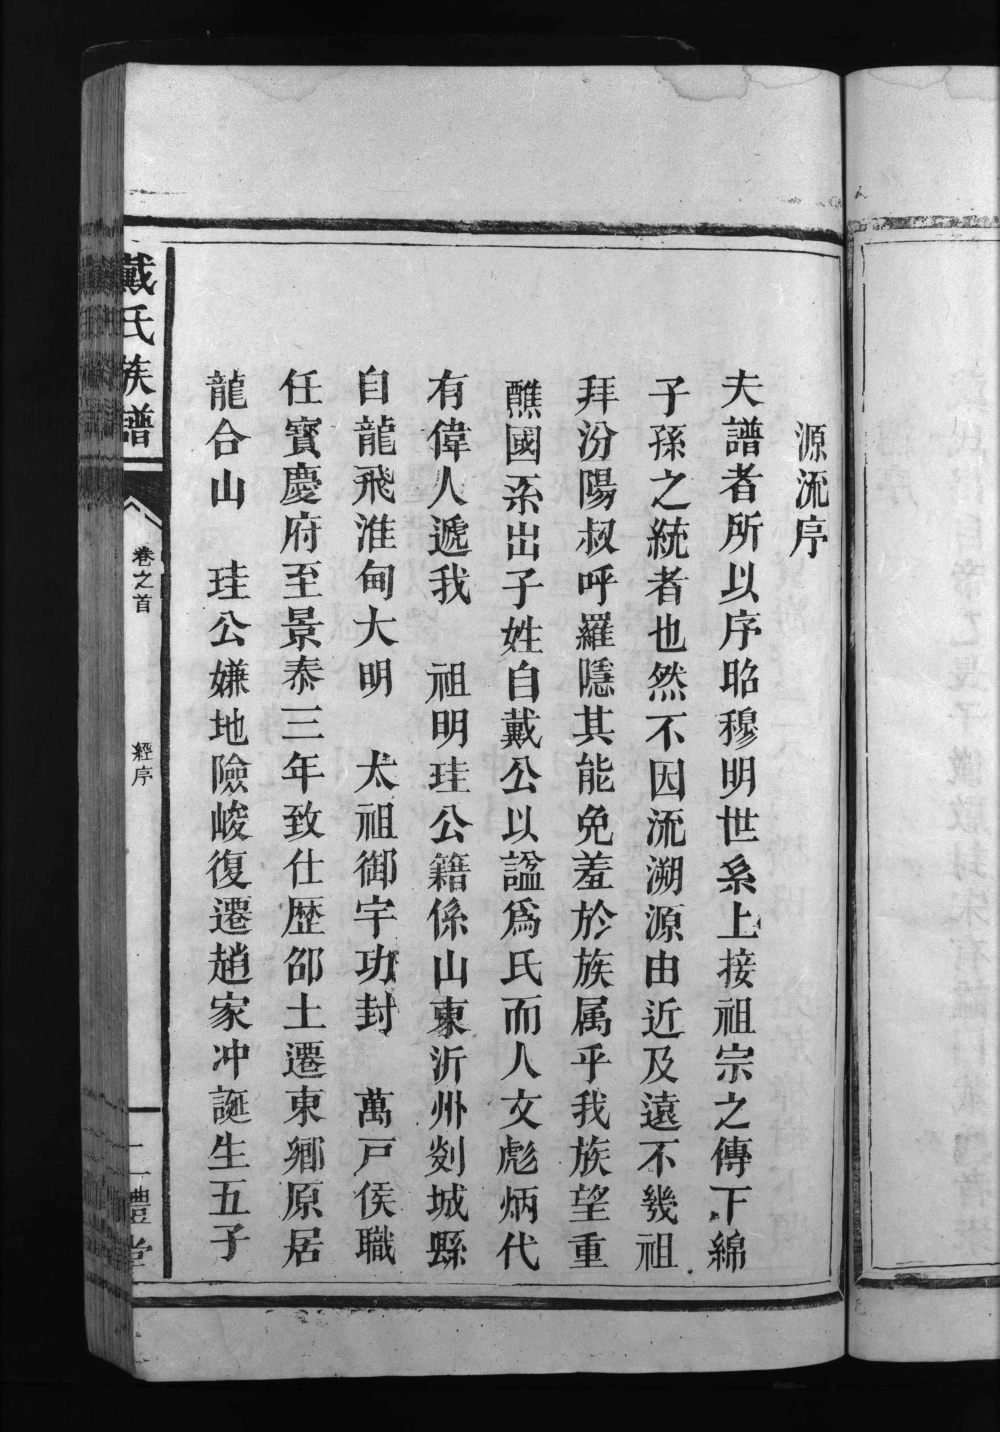 源流序
夫譜者所以序昭穆明世系上接祖宗之傳下綿
子孫之統者也然不因流溯源由近及遠不幾祖
拜汾陽叔呼羅隱其能免羞於族属乎我族望重
醮國系出子姓自戴公以諡爲氏而人文彪炳代
有偉人遞我　祖明珪公籍係山東沂州剡城縣
自龍飛淮甸大明　太祖御宇功封　萬戶侯職
任寶慶府至景泰三年致仕歷邵土遷東鄉原居
龍合山　珪公嫌地險峻復遷趙家冲誕生五子
戴氏族譜
卷之首
經序
二
禮堂